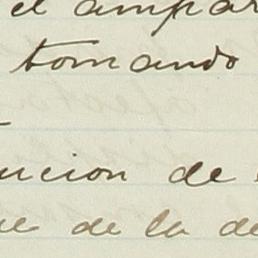 el ampar
tomando
ucion de
de la de